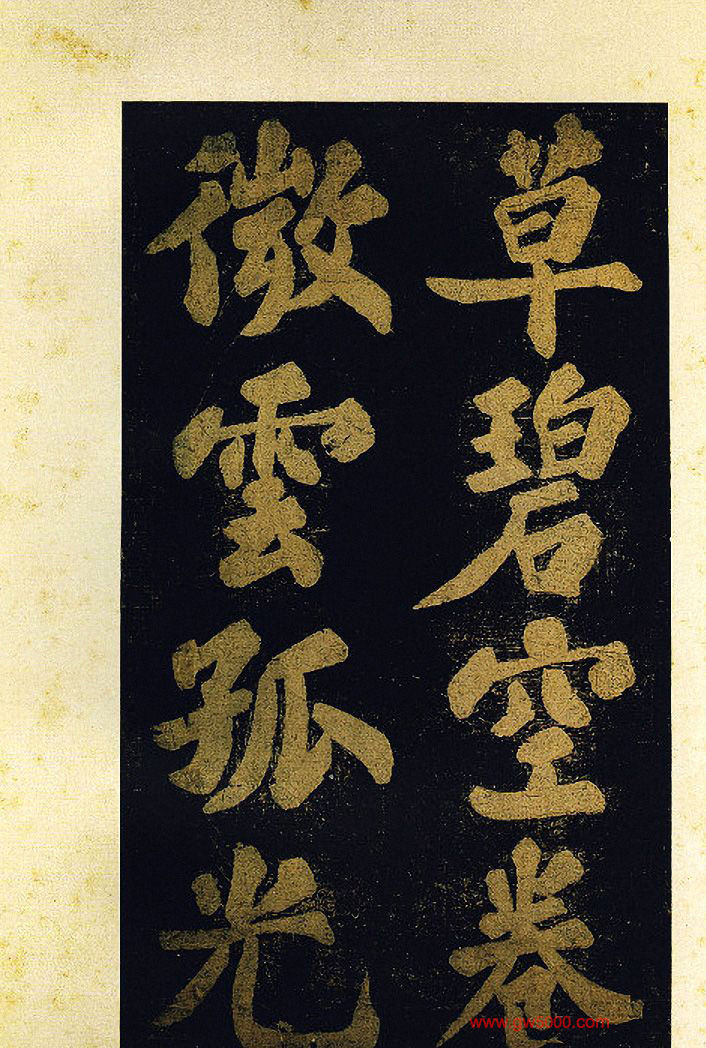 草碧空卷
微雲孤光
www.gw5000.com